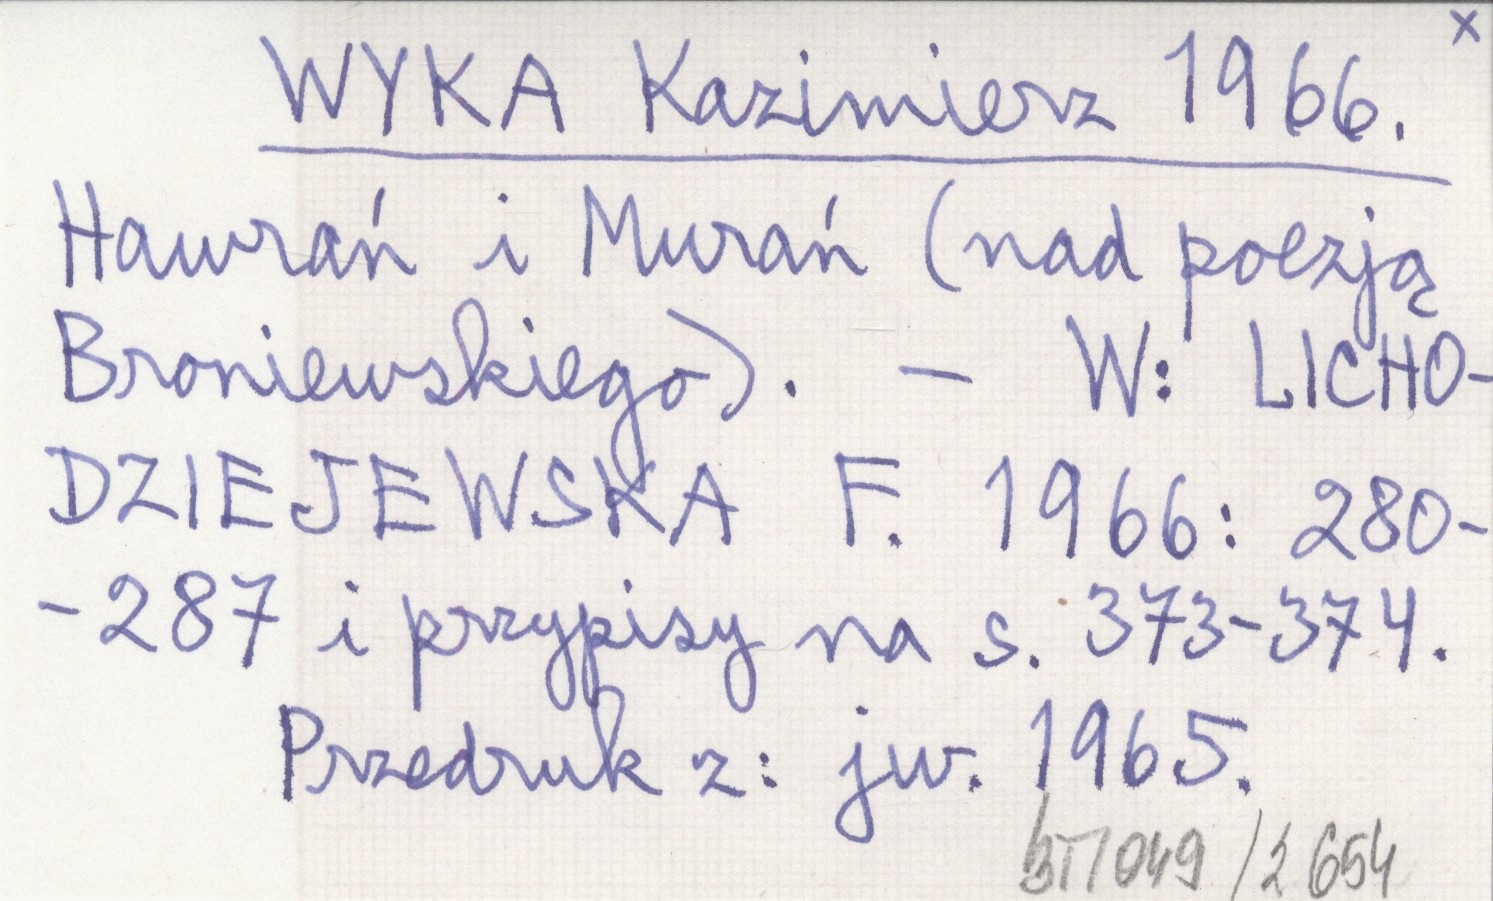 x
WYKA Kazimierz 1966.
Hawrań i Murań (nad poezją
Broniewskiego). — W: LICHO-
DZIEJEWSKA F. 1966: 280-
-287 i przypisy na s. 373-374.
Przedruk z: jw. 1965.
/049 /2654